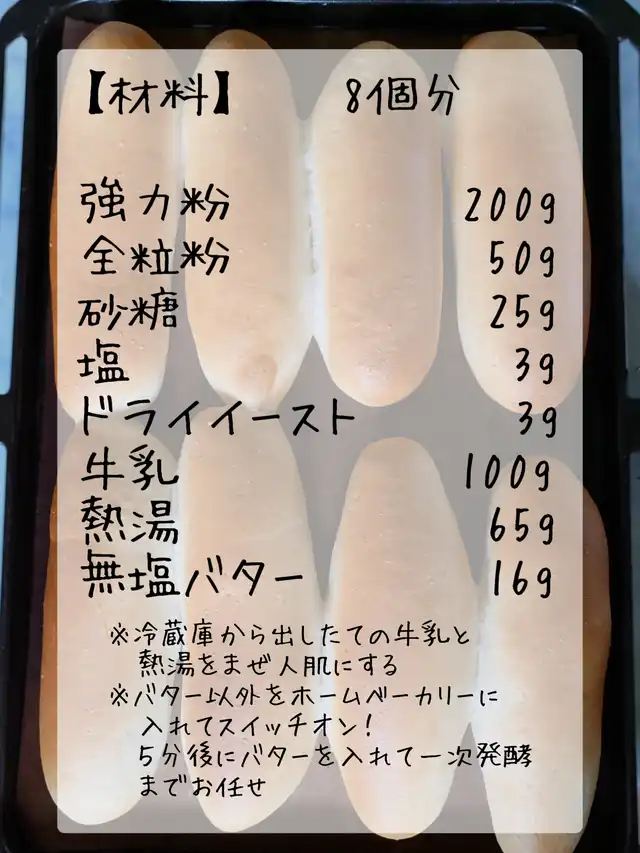 【材料】 8個分
強力粉 200g
全粒粉 50g
砂糖 25g
塩 3g
ドライイースト 3g
牛乳 100g
熱湯 65g
無塩バター 16g
※冷蔵庫から出したての牛乳と
熱湯をまぜ人肌にする
※バター以外をホームベーカリーに
入れてスイッチオン!
5分後にバターを入れて一次発酵
までお任せ